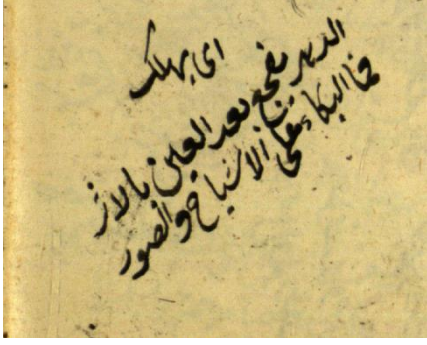 اى يهلك
الدهر يفجع بعد العين بالاثر
فما البكاء على الاشباح والصور